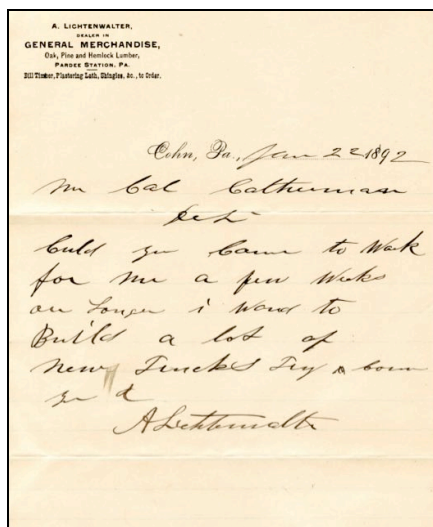 A. LICHTENWALTER,
DEALER IN
GENERAL MERCHANDISE,
Oak, Pine and Hemlock Lumber,
PARDEE STATION, PA.
Bill Timber, Plastering Lath, Shingles, &c., to Order.
Cohn, Pa., 22 1892
Mr Cal Catherman
Culd you Come to Work
for me a few Weeks
or Longer i Want to
Build a lot of
New Trucks Try & Come
A Lichtenwalter